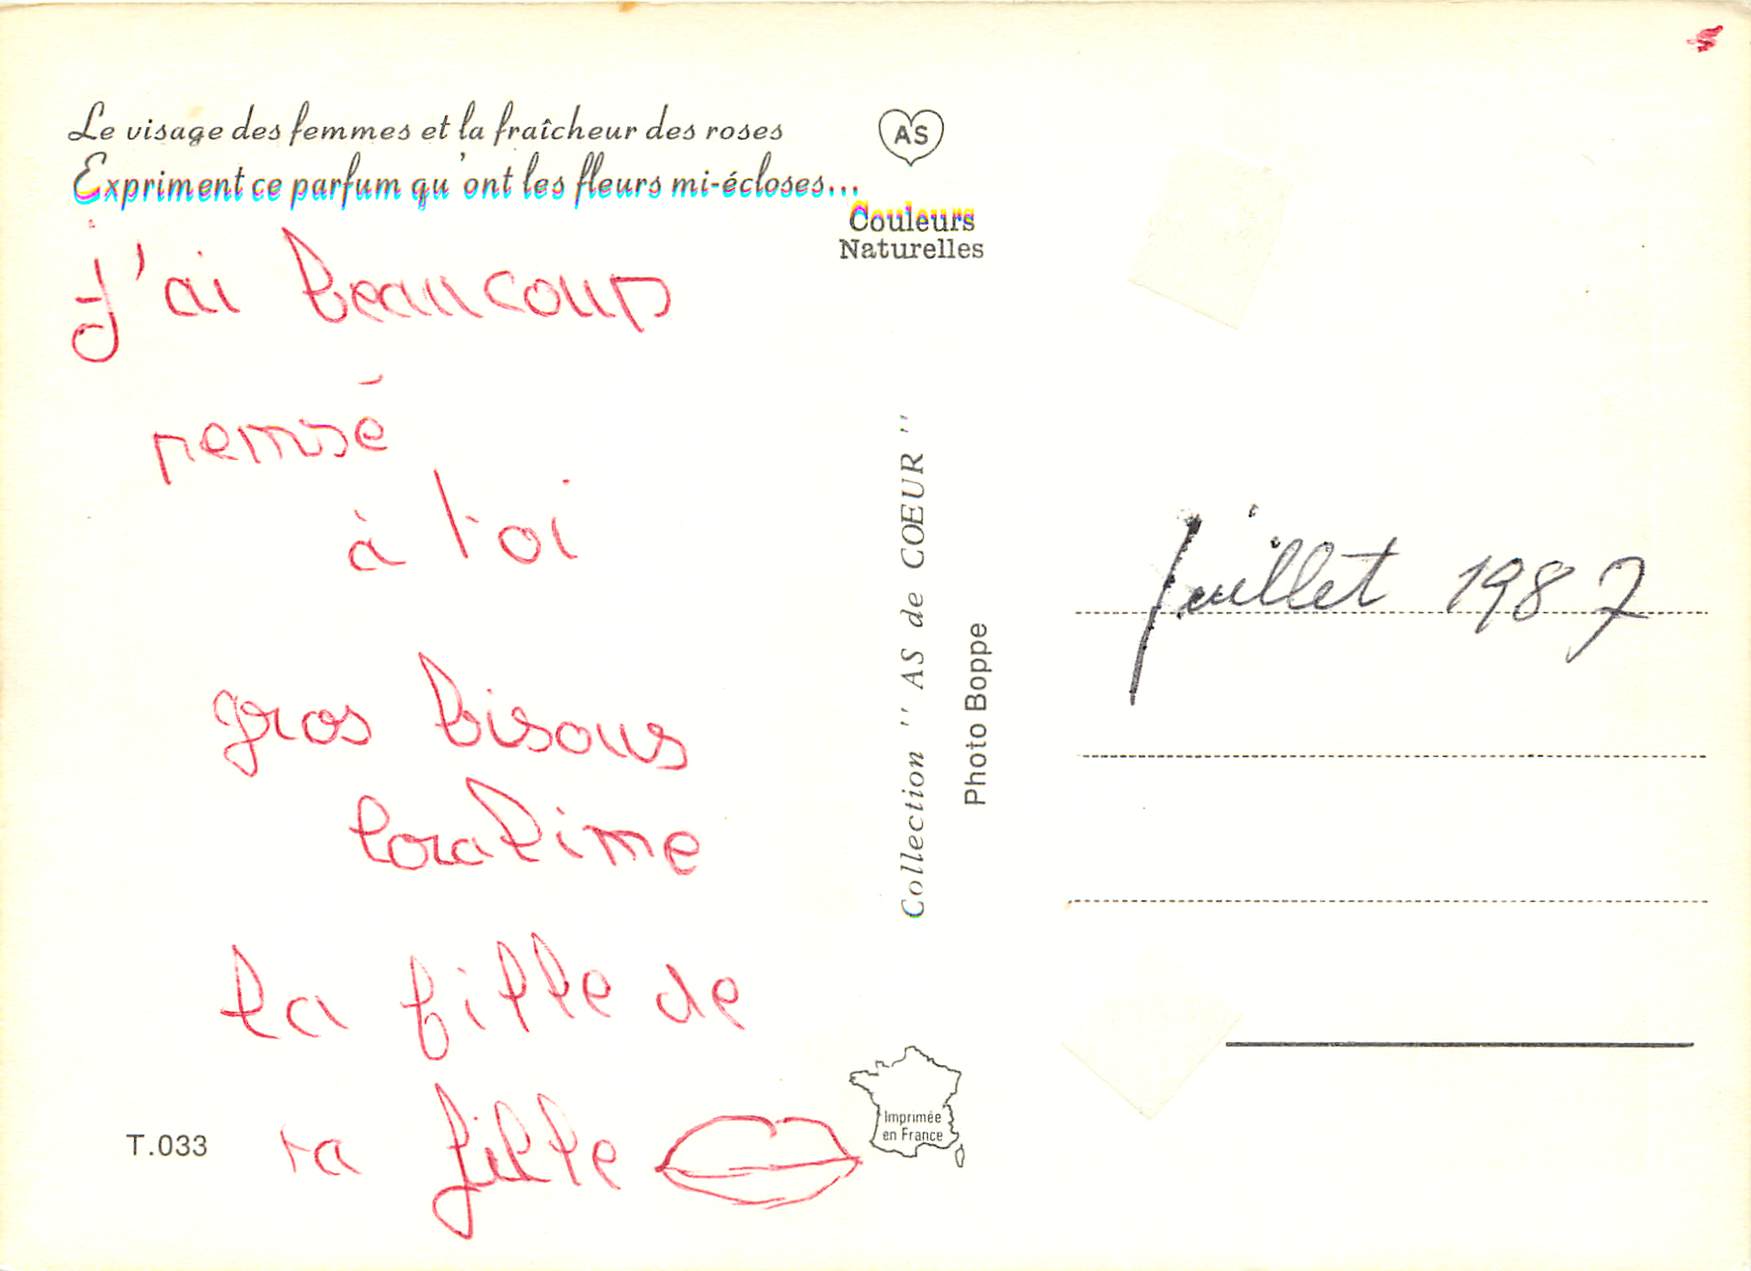 Le visage des femmes et la fraîcheur des roses
Expriment ce parfum qu'ont les fleurs mi-écloses...
AS
Couleurs
Naturelles
J'ai beaucoup
pensé
à toi
gros bisous
la fille de
ta fille
T.033
Collection "AS de CŒUR"
Photo Boppe
Imprimée
en France
Juillet 1987